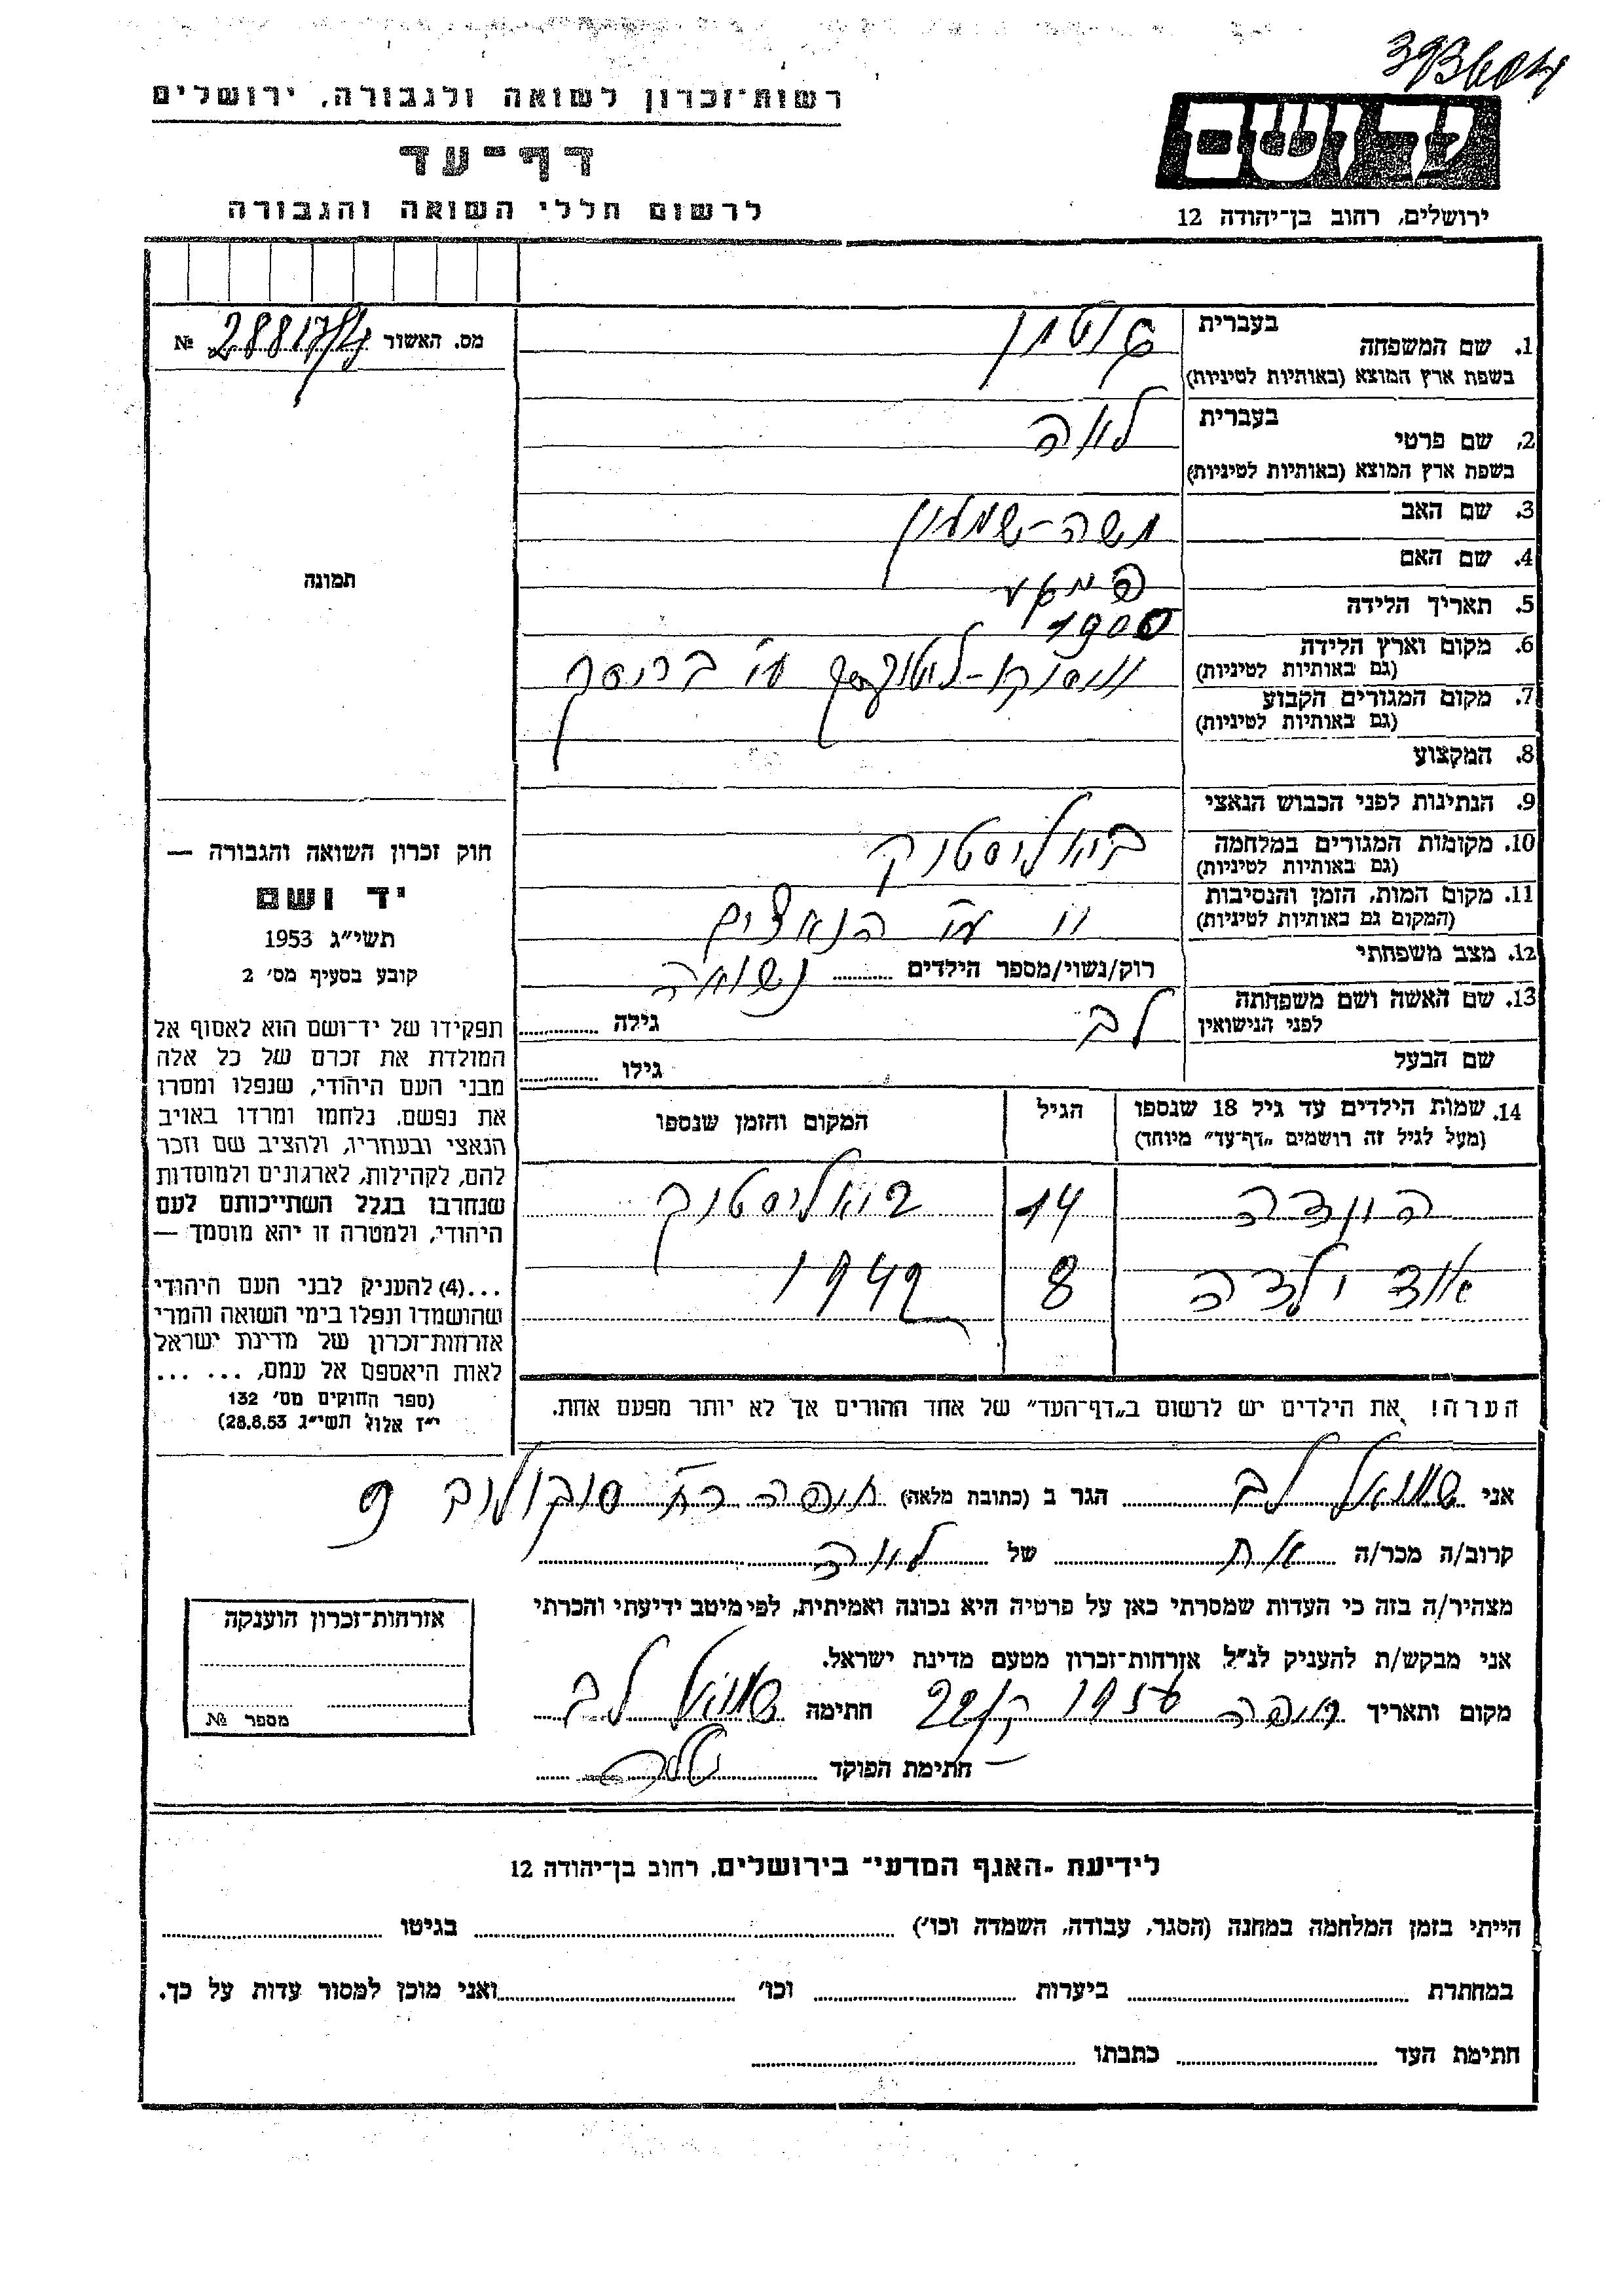 393604
יד ושם
ירושלים, רחוב בן־יהודה 12
רשות־זכרון לשואה ולגבורה, ירושלים
דף־עד
לרשום חללי השואה והגבורה
מס. האשור № 28817/4
1. שם המשפחה בעברית
בשפת ארץ המוצא (באותיות לטיניות)
2. שם פרטי בעברית לאה
בשפת ארץ המוצא (באותיות לטיניות)
3. שם האב משה-שמעון
4. שם האם
5. תאריך הלידה 1900
6. מקום וארץ הלידה
(גם באותיות לטיניות) וויסוקא-ליטווסק ע״י בריסק
7. מקום המגורים הקבוע
(גם באותיות לטיניות)
8. המקצוע
9. הנתינות לפני הכבוש הנאצי
10. מקומות המגורים במלחמה ביאליסטוק
(גם באותיות לטיניות)
11. מקום המות, הזמן והנסיבות
(המקום גם באותיות לטיניות) וו ע״י הנאצים
12. מצב משפחתי
רוק/נשוי/מספר הילדים נשואה
13. שם האשה ושם משפחתה
לפני הנישואין לב גילה
שם הבעל גילו
14. שמות הילדים עד גיל 18 שנספו הגיל המקום והזמן שנספו
(מעל לגיל זה רושמים „דף־עד” מיוחד)
14 ביאליסטוק
עוד ילדה 8 1942
הערה! את הילדים יש לרשום ב„דף־העד” של אחד ההורים אך לא יותר מפעם אחת.
תמונה
חוק זכרון השואה והגבורה —
יד ושם
תשי״ג 1953
קובע בסעיף מס׳ 2
תפקידו של יד־ושם הוא לאסוף אל
המולדת את זכרם של כל אלה
מבני העם היהודי, שנפלו ומסרו
את נפשם, נלחמו ומרדו באויב
הנאצי ובעוזריו, ולהציב שם וזכר
להם, לקהילות, לארגונים ולמוסדות
שנחרבו בגלל השתייכותם לעם
היהודי, ולמטרה זו יהא מוסמך —
...(4) להעניק לבני העם היהודי
שהושמדו ונפלו בימי השואה והמרי
אזרחות־זכרון של מדינת ישראל
לאות היאספם אל עמם, ... ...
(ספר החוקים מס׳ 132
י״ז אלול תשי״ג 28.8.53)
אני שמואל לב הגר ב (כתובת מלאה) חיפה רח׳ סוקולוב 9
קרוב/ה מכר/ה אח של לאה
מצהיר/ה בזה כי העדות שמסרתי כאן על פרטיה היא נכונה ואמיתית, לפי מיטב ידיעתי והכרתי
אני מבקש/ת להעניק לנ״ל אזרחות־זכרון מטעם מדינת ישראל.
מקום ותאריך חיפה חתימה שמואל לב
חתימת הפוקד
אזרחות־זכרון הוענקה
מספר №
לידיעת „האגף המדעי” בירושלים, רחוב בן־יהודה 12
הייתי בזמן המלחמה במחנה (הסגר, עבודה, השמדה וכו׳) בגיטו
במחתרת ביערות וכו׳ ואני מוכן למסור עדות על כך.
חתימת העד כתבתו